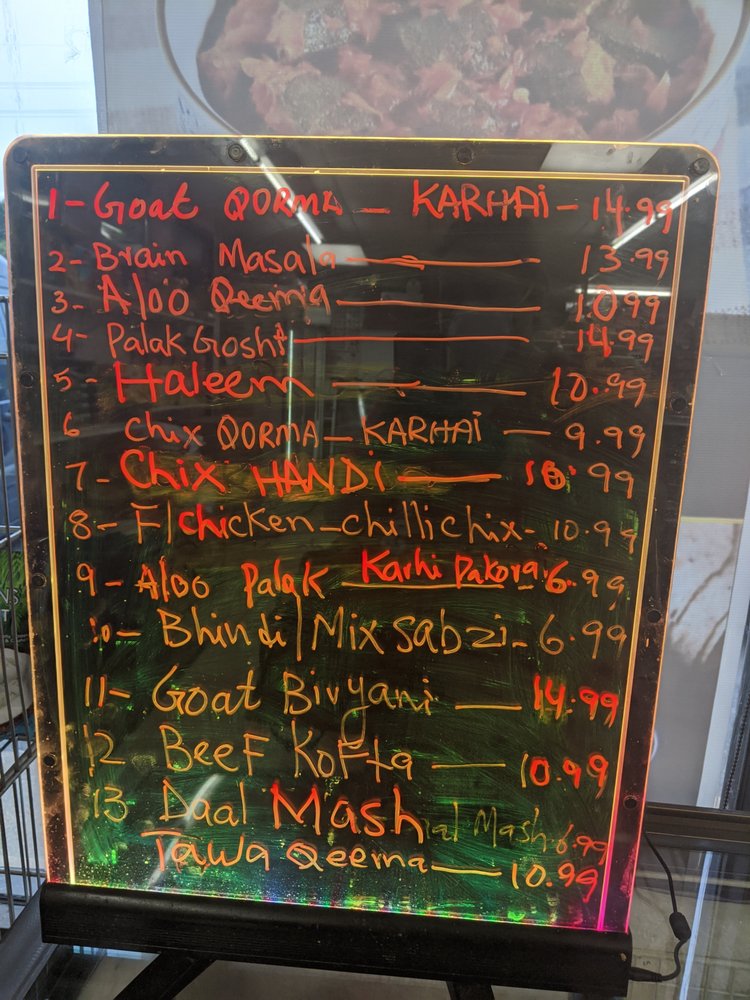 1-Goat QORMA - KARHAi - 14.99
2- Brain Masala 13.99
3- Aloo Qeema 10.99
4- Palak Gosht 14.99
5- Haleem 10.99
6 Chix QORMA - KARHAi - 9.99
7- Chix HANDi 10.99
8- F/Chicken-chilli chix- 10.99
9- Aloo Palak Karhi Pakora 6.99
10- Bhindi/Mix sabzi- 6.99
11- Goat Biryani - 14.99
12 BeeF Kofta - 10.99
13 Daal Mash al Mash 6.99
Tawa Qeema 10.99